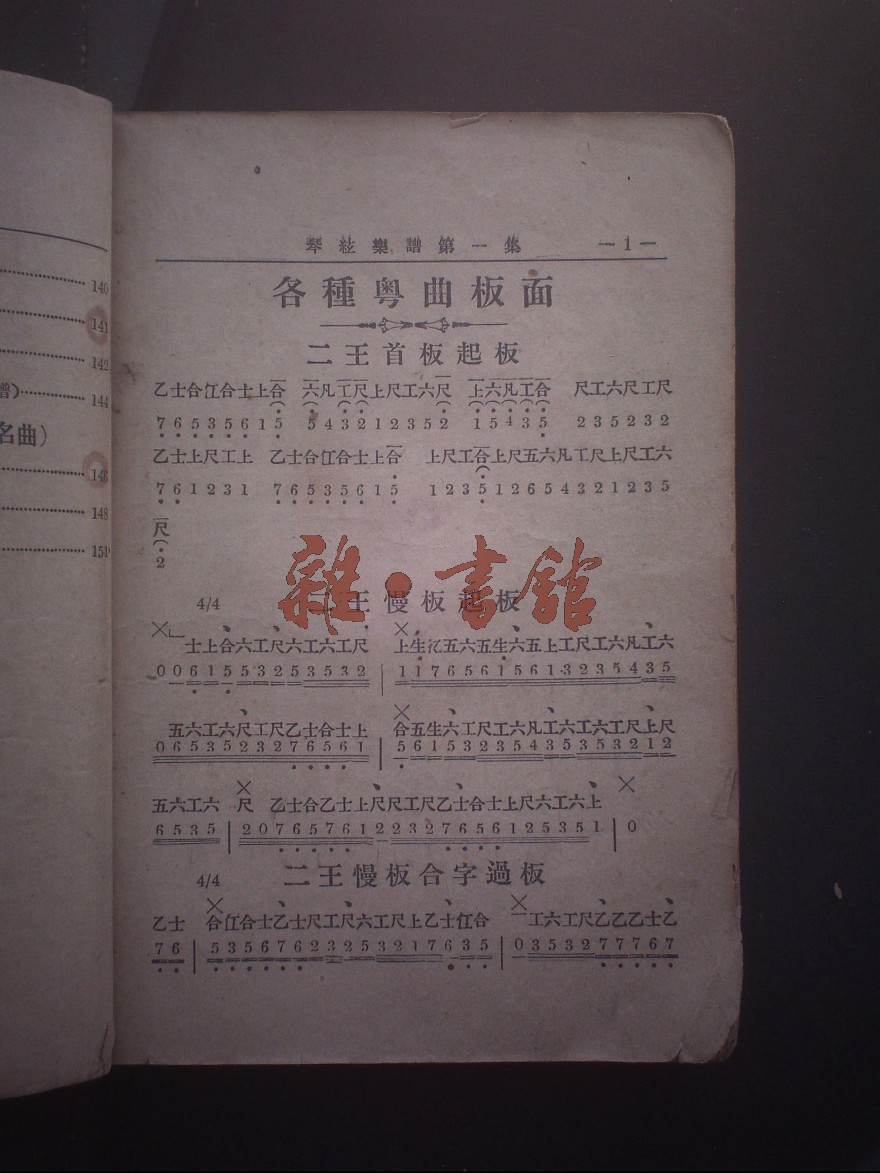 140
141
142
譜) 144
名曲)
146
148
151
琴絃樂譜第一集 —1—
各種粵曲板面
二王首板起板
乙士合仜合士上合 六凡工尺上尺工六尺 上六凡工合 尺工六尺工尺
7 6 5 3 5 6 1 5 5 4 3 2 1 2 3 5 2 1 5 4 3 5 2 3 5 2 3 2
乙士上尺工上 乙士合仜合士上合 上尺工合上尺五六凡工尺上尺工六
7 6 1 2 3 1 7 6 5 3 5 6 1 5 1 2 3 5 1 2 6 5 4 3 2 1 2 3 5
尺
2
雜·書館
4/4 二王慢板起板
士上合六工尺六工六工尺
0 0 6 1 5 5 3 2 5 3 5 3 2
五六工六尺工尺乙士合士上
0 6 5 3 5 2 3 2 7 6 5 6 1
合五生六工尺工六凡工六工六工尺上尺
5 6 1 5 3 2 3 5 4 3 5 3 5 3 2 1 2
五六工六 尺 乙士合乙士上尺尺工尺乙士合士上尺六工六上
6 5 3 5 2 0 7 6 5 7 6 1 2 2 3 2 7 6 5 6 1 2 5 3 5 1 0
4/4 二王慢板合字過板
乙士 合仜合士乙士尺工尺六工尺上乙士仜合 工六工尺乙乙乙士乙
7 6 5 3 5 6 7 6 2 3 2 5 3 2 1 7 6 3 5 0 3 5 3 2 7 7 7 6 7